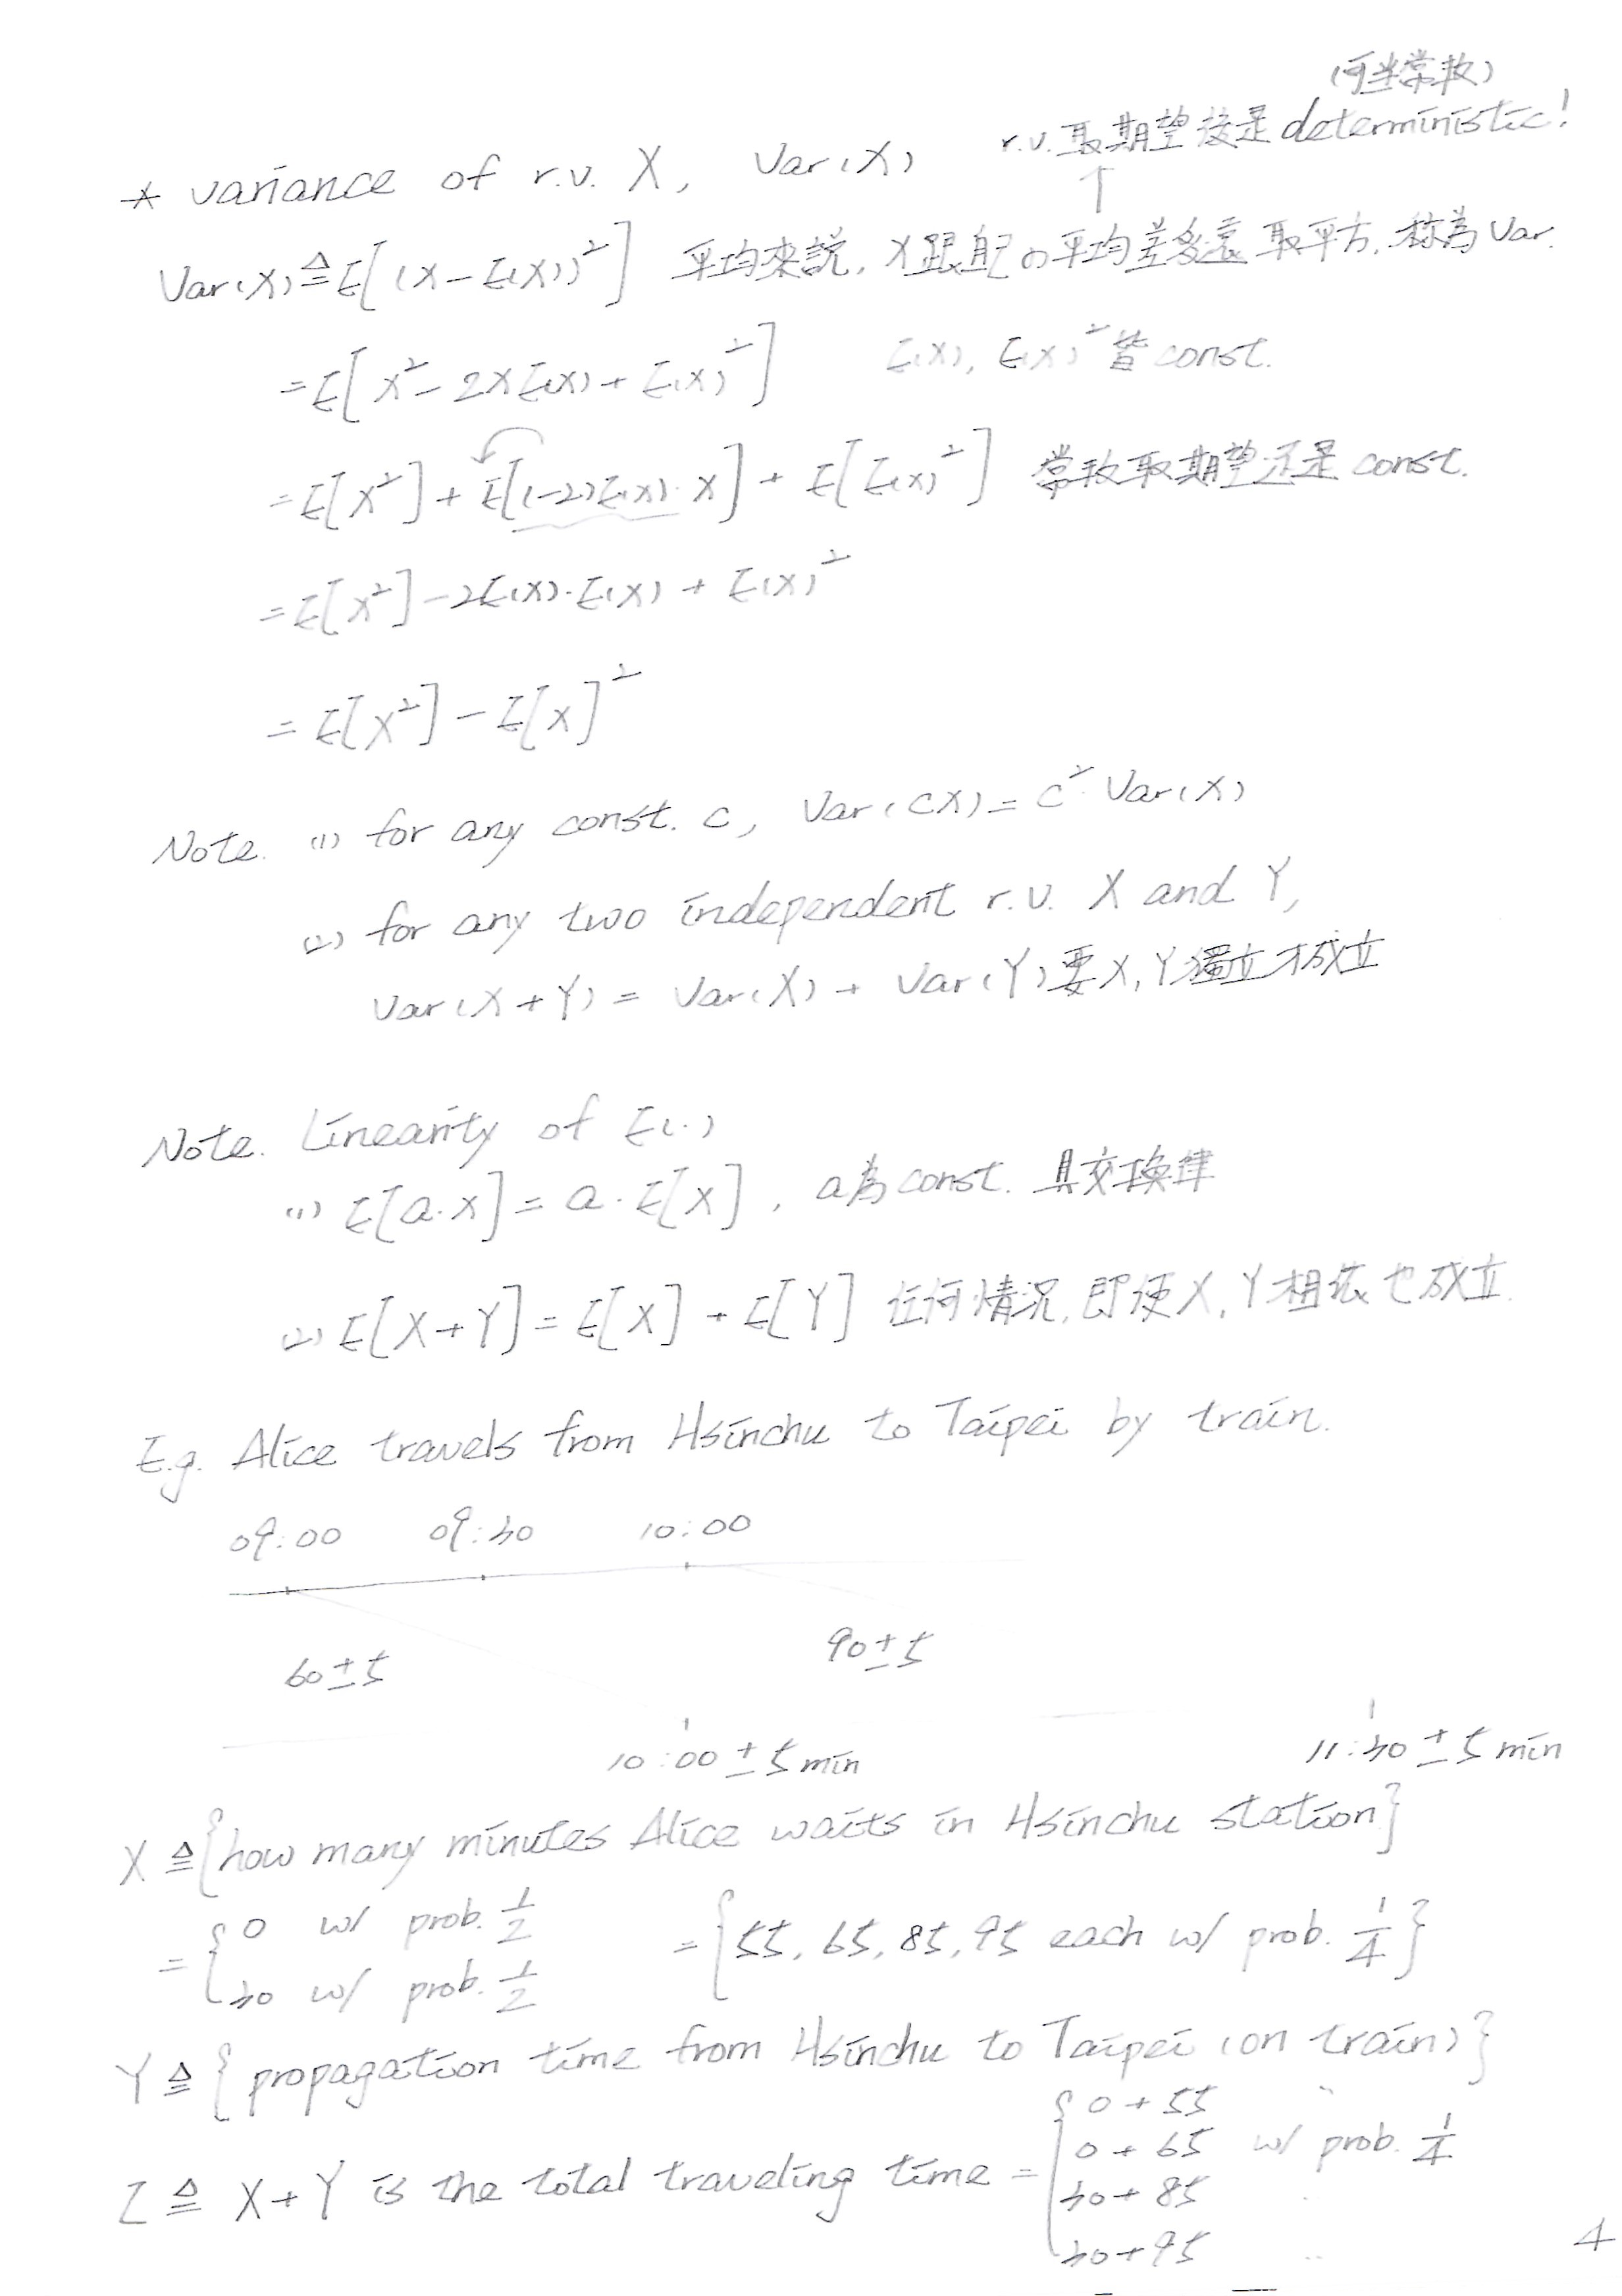 (可當常數)
* variance of r.v. X, Var(X) r.v.取期望後是deterministic!
↑
Var(X)≜E[(X-E(X))²] 平均來說, X跟自己の平均差多遠 取平方, 稱為Var.
=E[X²-2XE(X)+E(X)²] E(X), E(X)²皆const.
=E[X²]+E[(-2)E(X)·X]+E[E(X)²] 常數取期望還是const.
=E[X²]-2E(X)·E(X)+E(X)²
=E[X²]-E[X]²
Note. (1) for any const. c, Var(cX)=c²·Var(X)
(2) for any two independent r.v. X and Y,
Var(X+Y) = Var(X) + Var(Y) 要X, Y獨立才成立
Note. Linearity of E(·)
(1) E[a·X]=a·E[X], a為const. 具交換律
(2) E[X+Y]=E[X]+E[Y] 任何情況, 即便X, Y相依也成立.
E.g. Alice travels from Hsinchu to Taipei by train.
09:00 09:30 10:00
60±5 90±5
10:00±5min 11:30±5min
X≜{how many minutes Alice waits in Hsinchu station}
={0 w/ prob. 1/2
30 w/ prob. 1/2
={55, 65, 85, 95 each w/ prob. 1/4}
Y≜{propagation time from Hsinchu to Taipei (on train)}
Z≜ X+Y is the total traveling time = {0+55 〃
0+65 w/ prob. 1/4
30+85 〃
30+95 〃
4